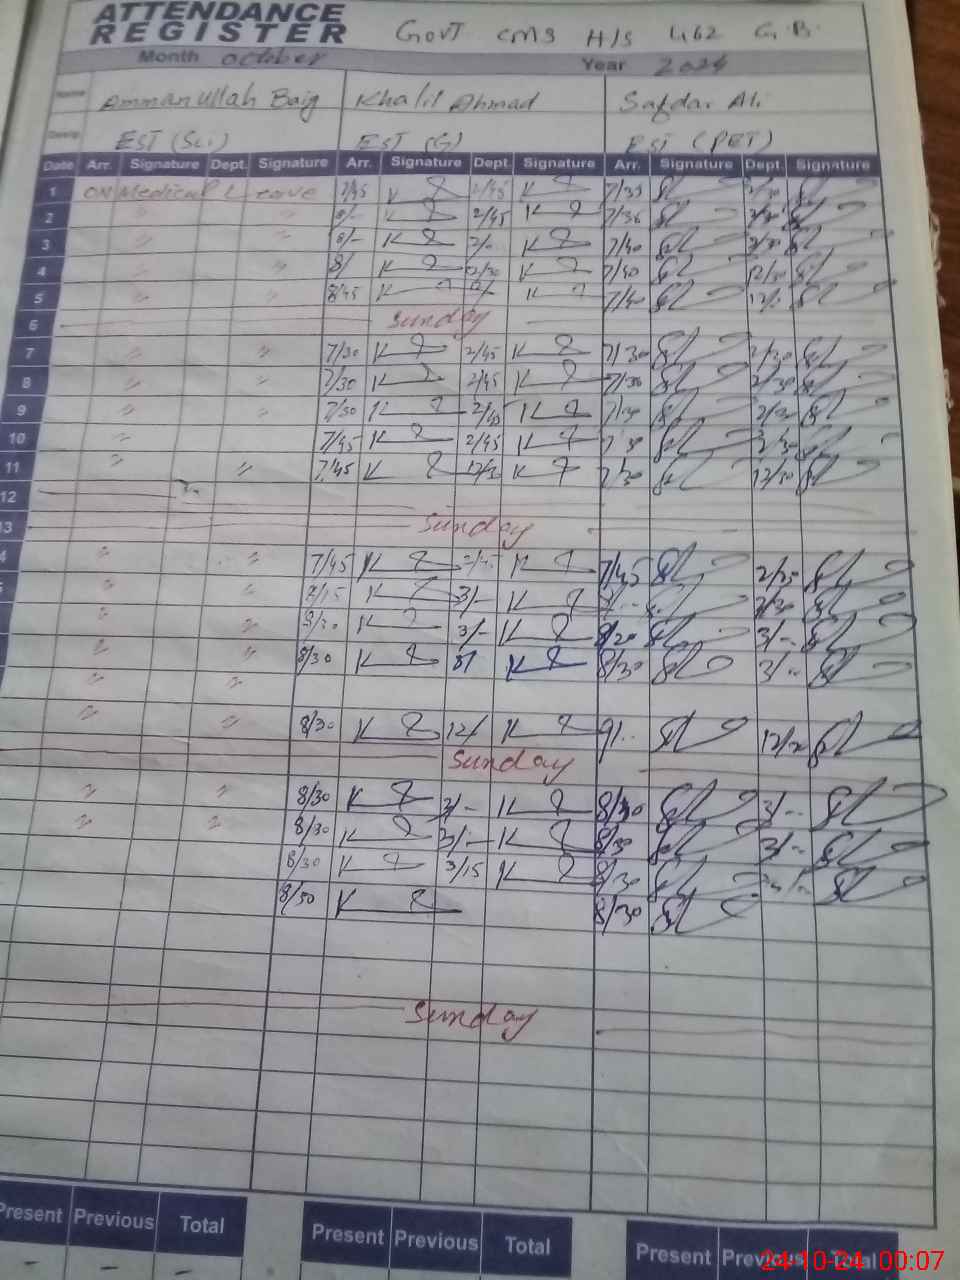 ATTENDANCE
REGISTER Govt CMS H/S 462 G.B.
Month October Year 2024
Name Ammanullah Baig Khalil Ahmad Safdar Ali
EST (Sci) EST (G) EST (PET)
Date Arr. Signature Dept. Signature Arr. Signature Dept. Signature Arr. Signature Dept. Signature
1 ON Medical Leave 7/45 K 2/45 K 7/35
2 " " 8/- K 2/45 K 7/36
3 " " 8/- K 2/- K 7/40
4 " " 8/ K 12/30 K 7/40 12/30
5 " " 8/45 K K 7/40 12/
6 Sunday
7 " " 7/30 K 2/45 K 7/30 2/30
8 " " 7/30 K 2/45 K 7/30 2/30
9 " " 7/30 K 2/45 K 7/30 2/30
10 " 7/45 K 2/45 K 7/30 2/30
11 " " 7/45 K 12/30 K 7/30 12/30
12
13 Sunday
4 " " 7/45 K 2/45 K 7/45 2/25
" " K 3/- K 2/30
" " 8/20 K 3/- K 8/20 3/--
" " 8/30 K K 8/30 3/--
" "
" " 8/30 K 12/ K 9/--
Sunday
" " 8/30 K 3/- K 8/30 3/--
" " 8/30 K 3/- K 8/30 3/--
8/30 K 3/15 K 8/30
8/30 K 8/30
Sunday
Present Previous Total Present Previous Total Present Previous Total
- -
24-10-24 00:07